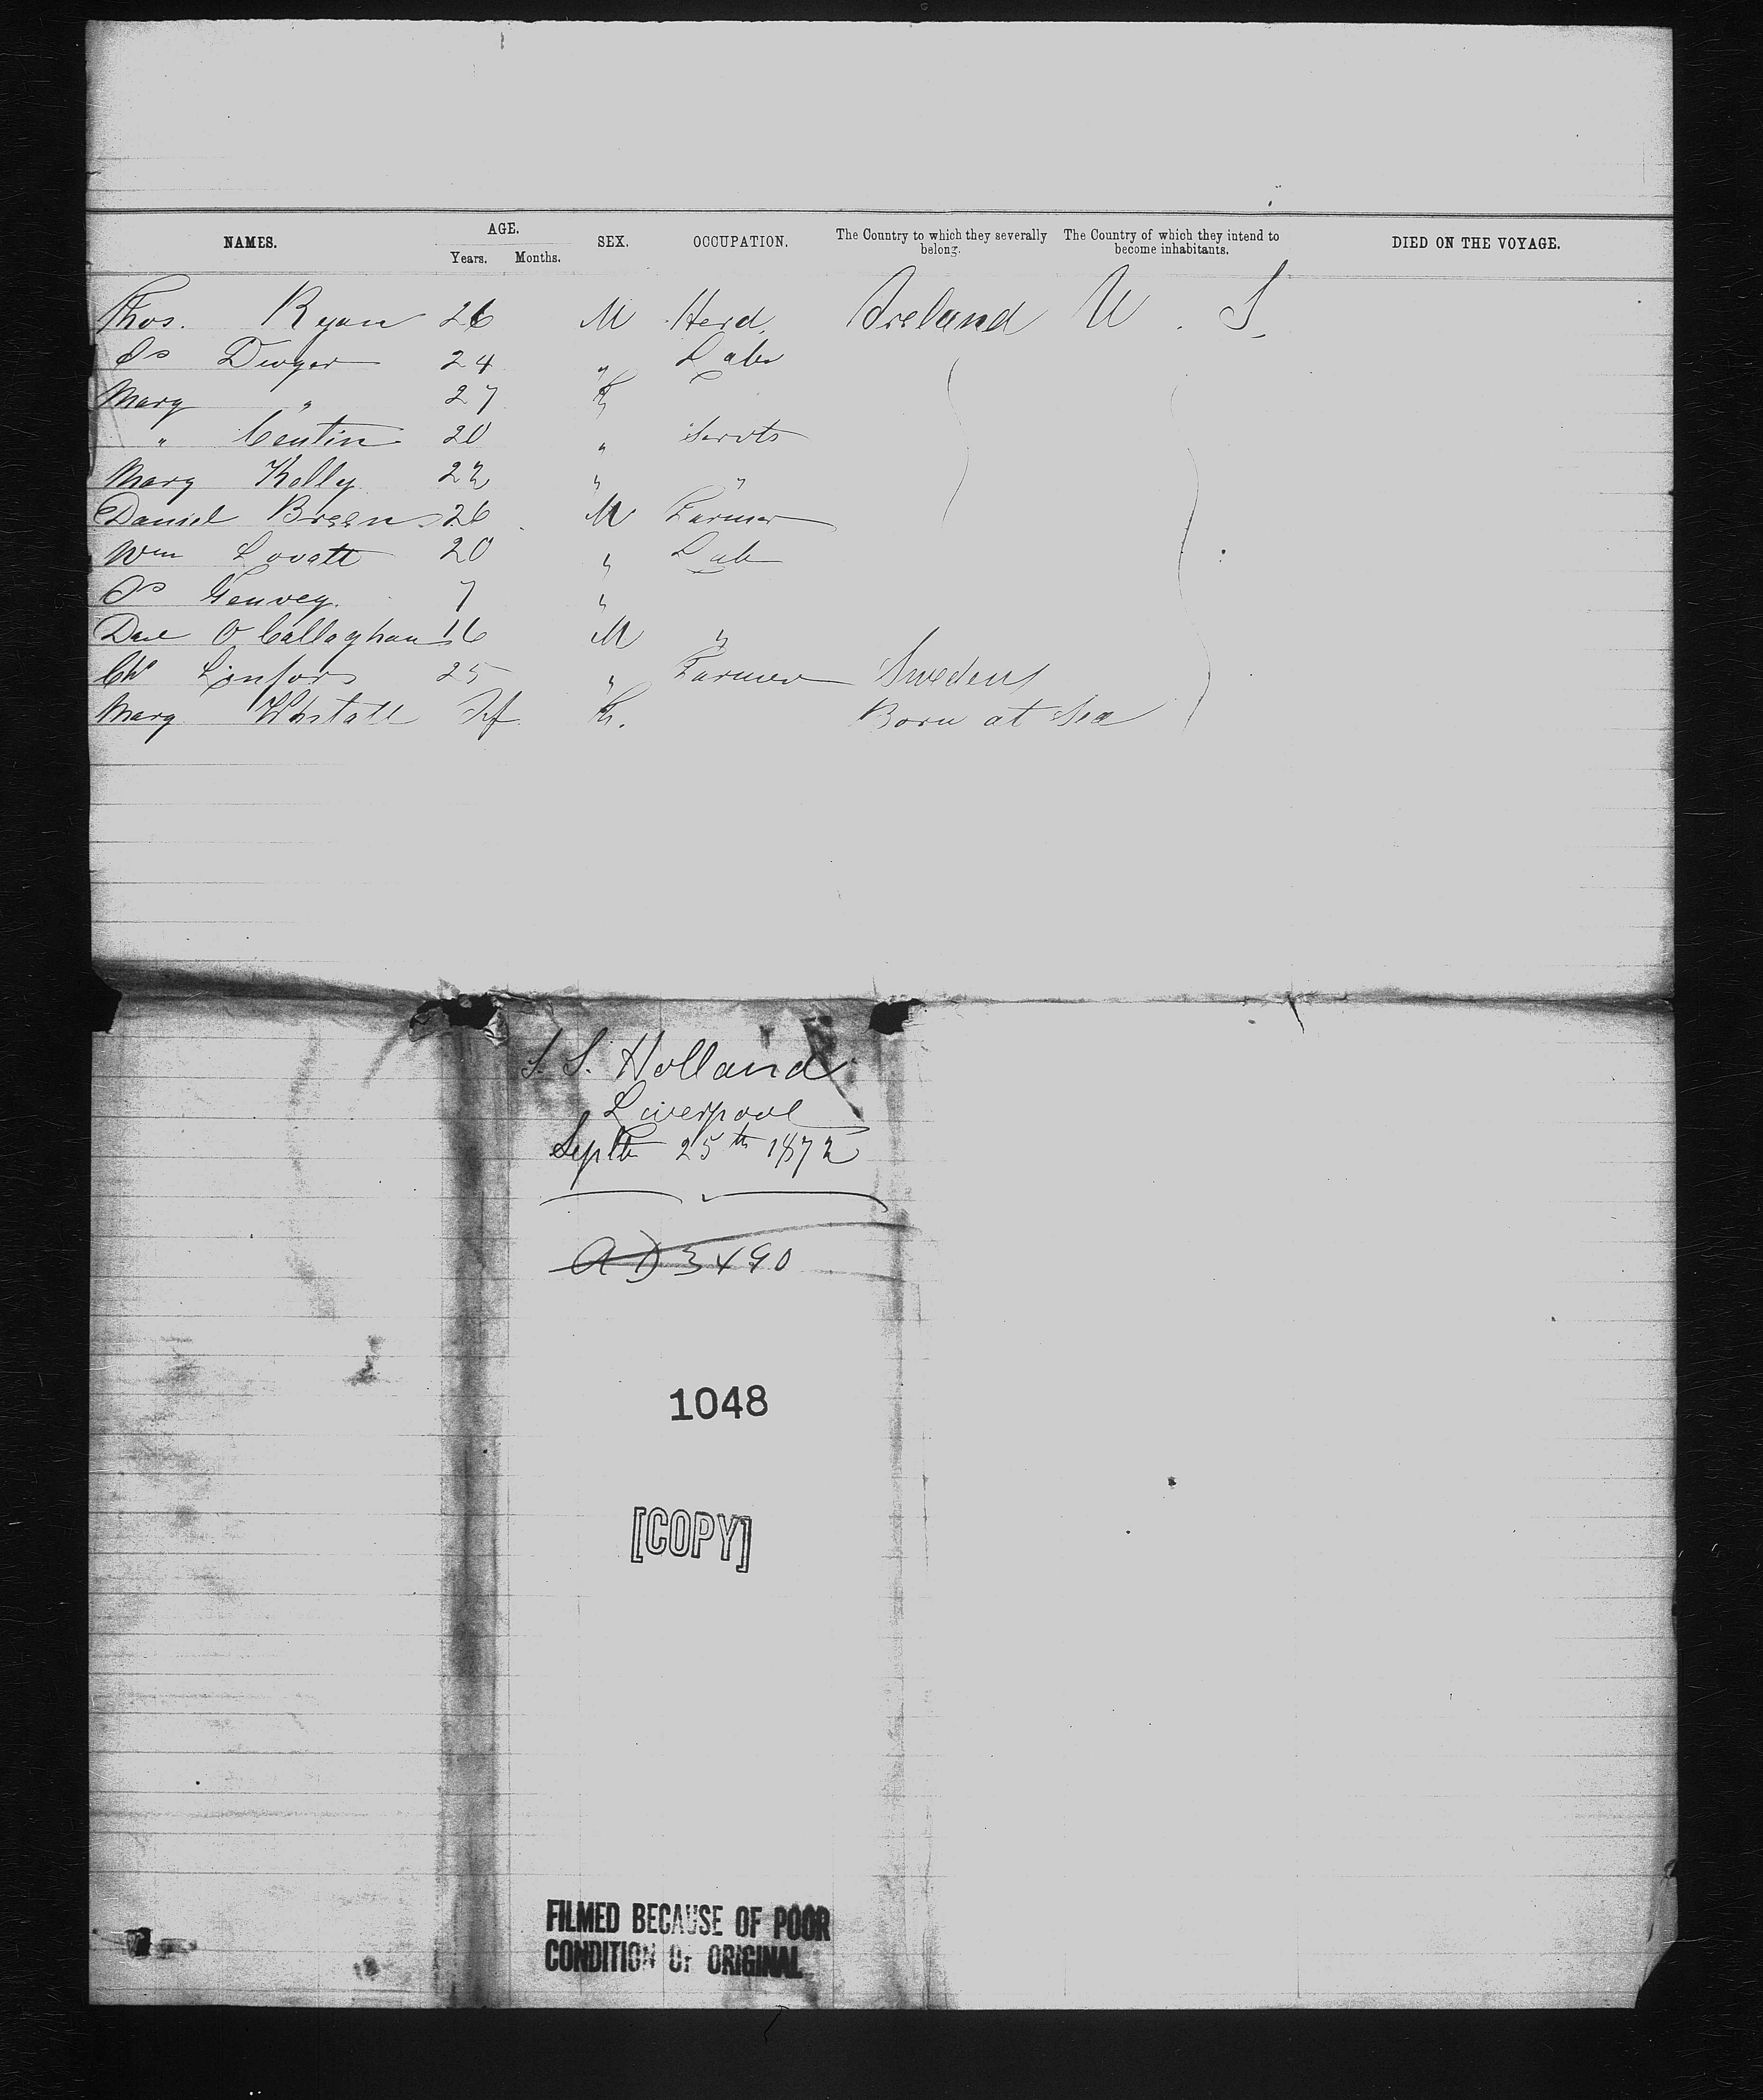 NAMES. AGE. Years. Months. SEX. OCCUPATION. The Country to which they severally belong. The Country of which they intend to become inhabitants. DIED ON THE VOYAGE.
Thos. Ryan 26 M Herd. Ireland U. S.
Dwyer 24 " Labr
Mary " 27 F
" 20 " Servts
Mary Kelly 22 " "
Daniel Breen 26 M Farmer
Wm Lovatt 20 " Lab
7 "
Danl O Callaghan 16 M "
25 " Farmer Sweden
Mary Inf F. Born at Sea
S. S. Holland
Liverpool
Septr 25th 1872
AD 3490
1048
[COPY]
FILMED BECAUSE OF POOR
CONDITION OF ORIGINAL